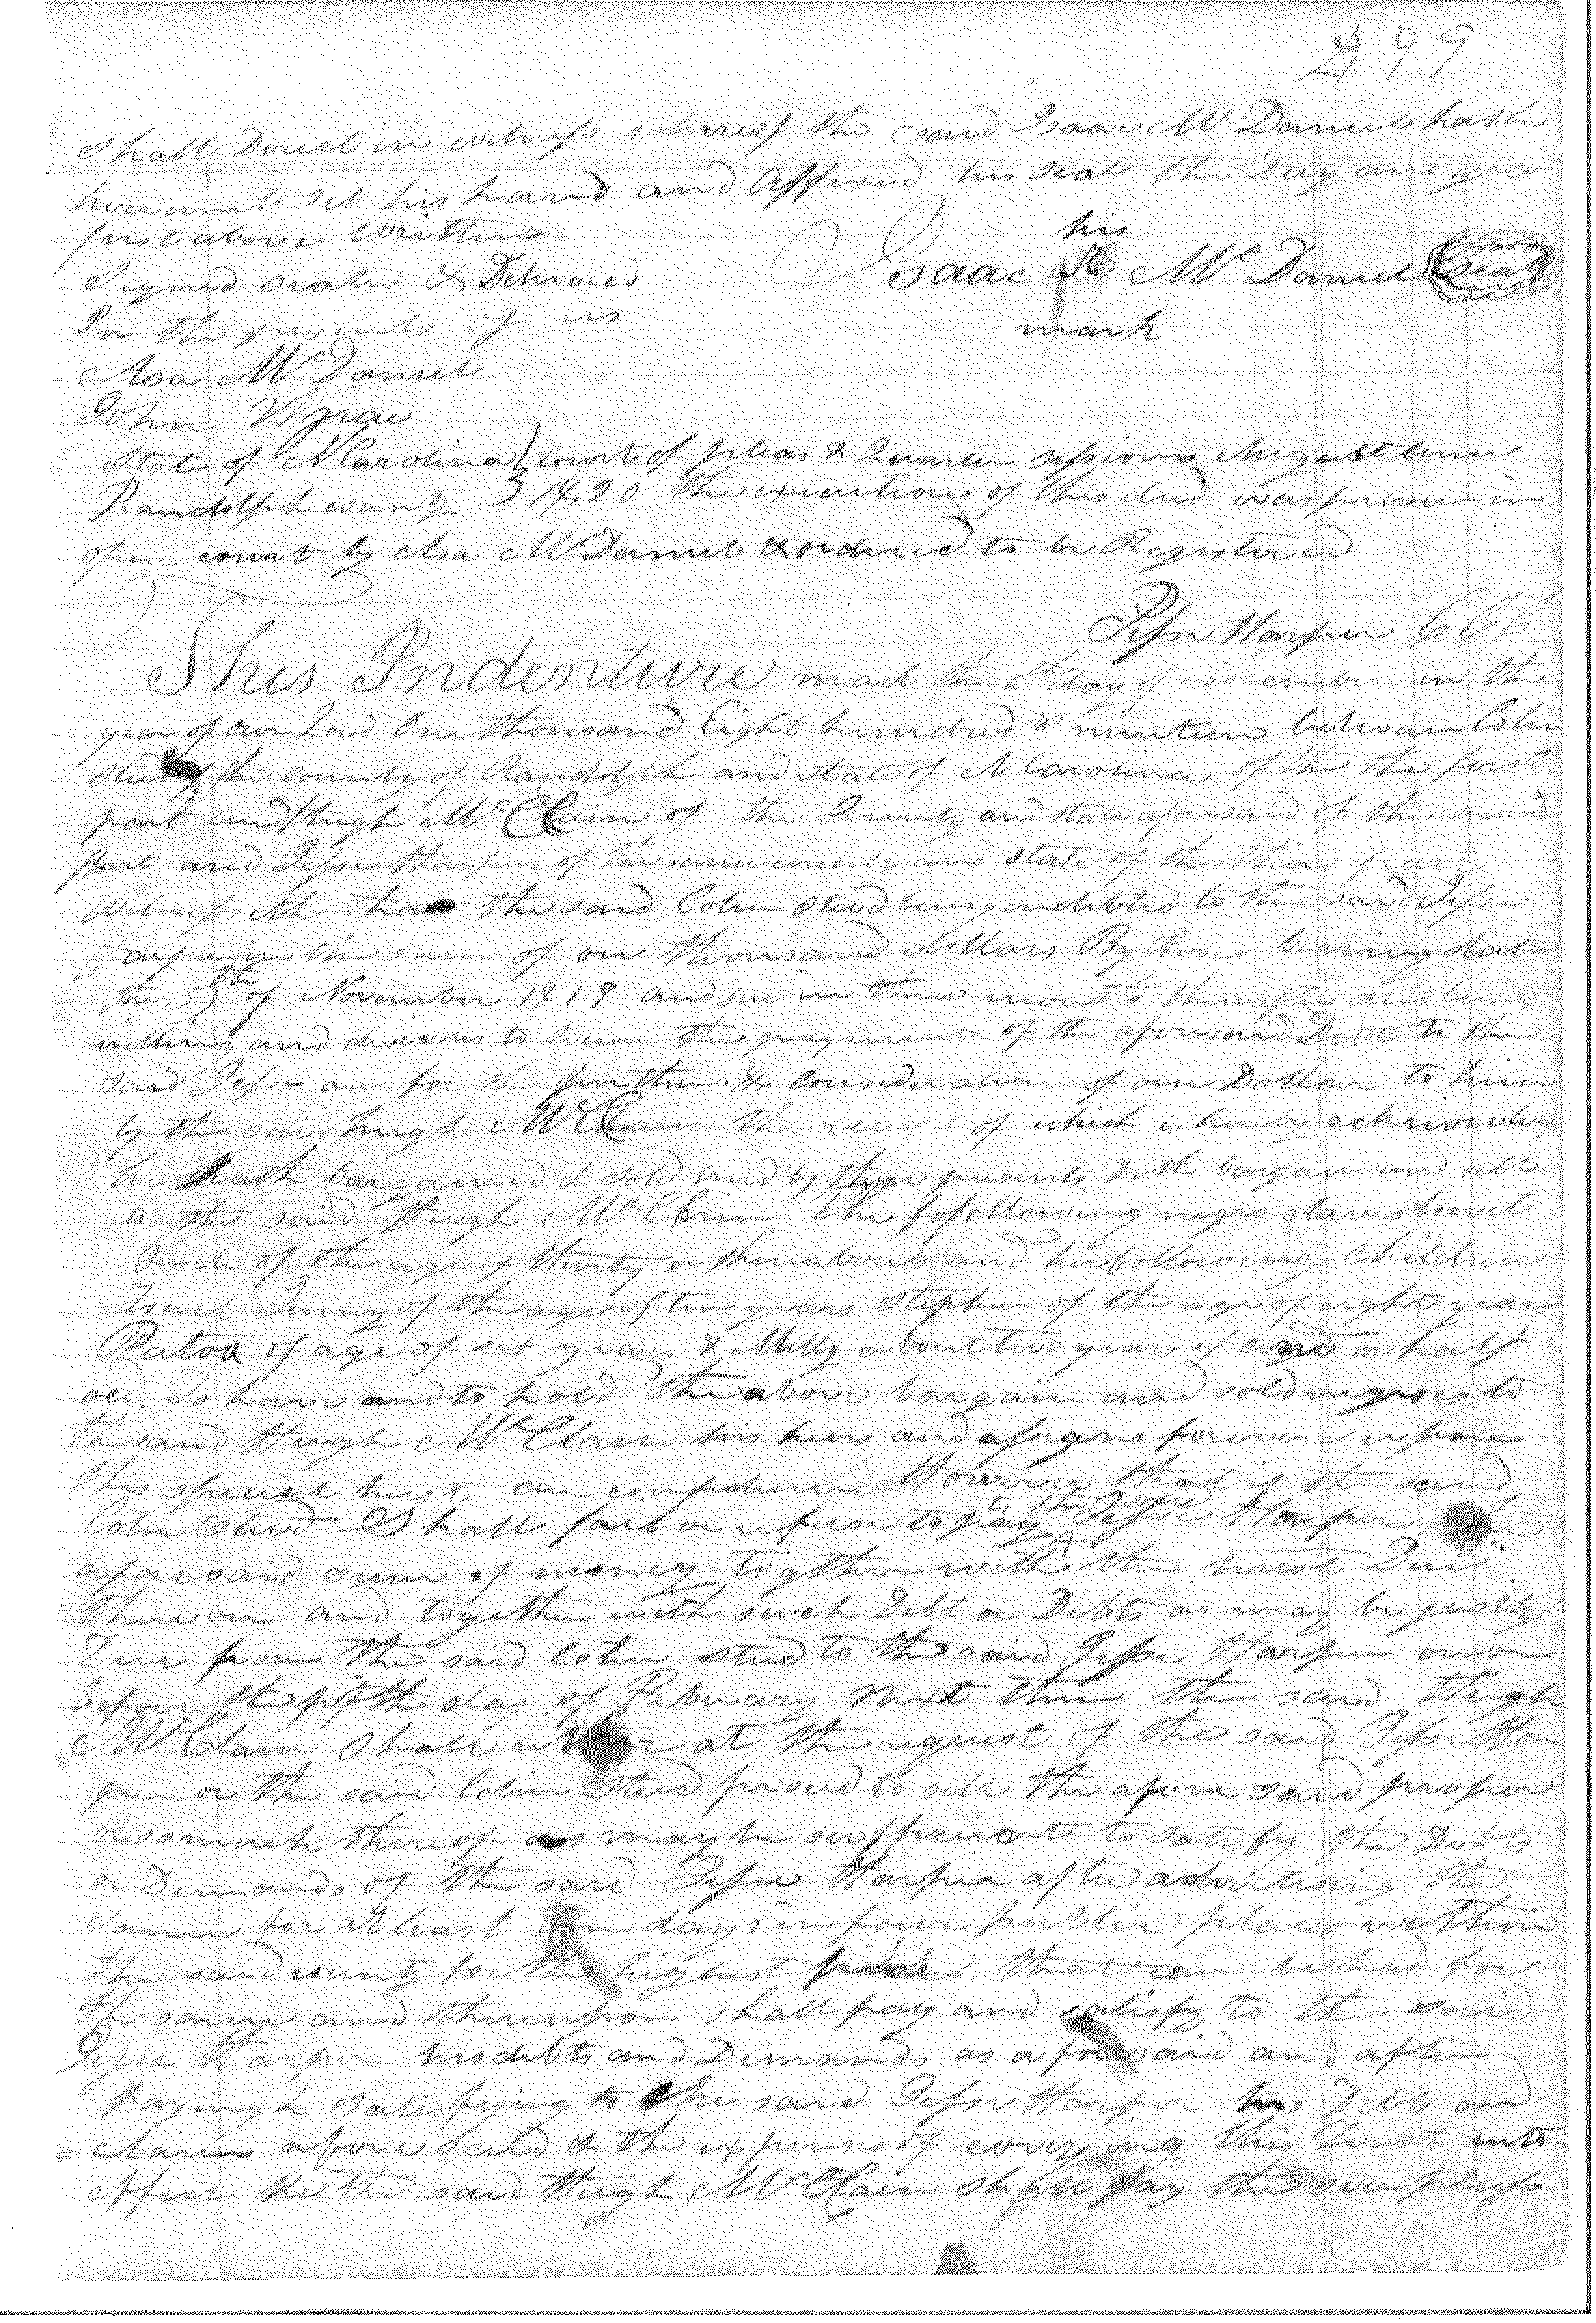 499
shall Direct in witness whereof the said Isaac McDaniel hath
hereunto set his hand and affixed his seal the Day and year
first above written
Signed sealed & Delivered
his
Isaac R McDaniel (seal)
mark
In the presents of us
Asa McDaniel
John
State of N Carolina } court of pleas & Quarter sessions August term
Randolph county } 1820 the execution of this deed was proven in
open court by Asa McDaniel & ordered to be Registered
Jesse Harper CCC
This Indenture made the 6th day of November in the
year of our Lord One thousand Eight hundred & nineteen between Colin
Steed of the county of Randolph and state of N Carolina of the the first
part and Hugh McClain of the County and state aforesaid of the second
part and Jesse Harper of the same county and state of the third part
Witnesseth that the said Colin Steed being indebted to the said Jesse
Harper in the sum of one thousand dollars By Bond bearing date
the 5th of November 1819 and due in three months thereafter and being
willing and desirous to secure the payment of the aforesaid Debt to the
said Jesse and for the further & consideration of one Dollar to him
by the said hugh McClain the receipt of which is hereby acknowledg
he hath bargained & sold and by these presents Doth bargain and sell
to the said Hugh McClain the fofollowing negro slaves towit
of the age of thirty or thereabouts and her following children
Towit Jenny of the age of ten years Stephen of the age of eight years
of age of six years & Milly about two years of and a half
old. To have and to hold the above bargain and sold negroes to
the said Hugh McClain his heirs and assigns forever upon
this special trust However that if the said
Colin Steed Shall fail or refuse to pay to the said Jesse Harper the
aforesaid sum of money together with the Due
thereon and together with such Debt or Debts as may be justly
Due from the said Colin Steed to the said Jesse Harper on or
before the fifth day of February Next then the said Hugh
McClain shall either at the request of the said Jesse Har
per or the said Colin Steed proceed to sell the afore said proper
or so much thereof as may be sufficient to satisfy the Debts
or Demands of the said Jesse Harper after advertising the
same for at least ten days in four public places within
the said county for the highest price that can be had for
the same and thereupon shall pay and satisfy to the said
Jesse Harper his debts and Demands as aforesaid and after
paying & satisfying to the said Jesse Harper his Debts and
claim afore said & the expenses of this Trust into
the said Hugh McClain shall pay the over pluss